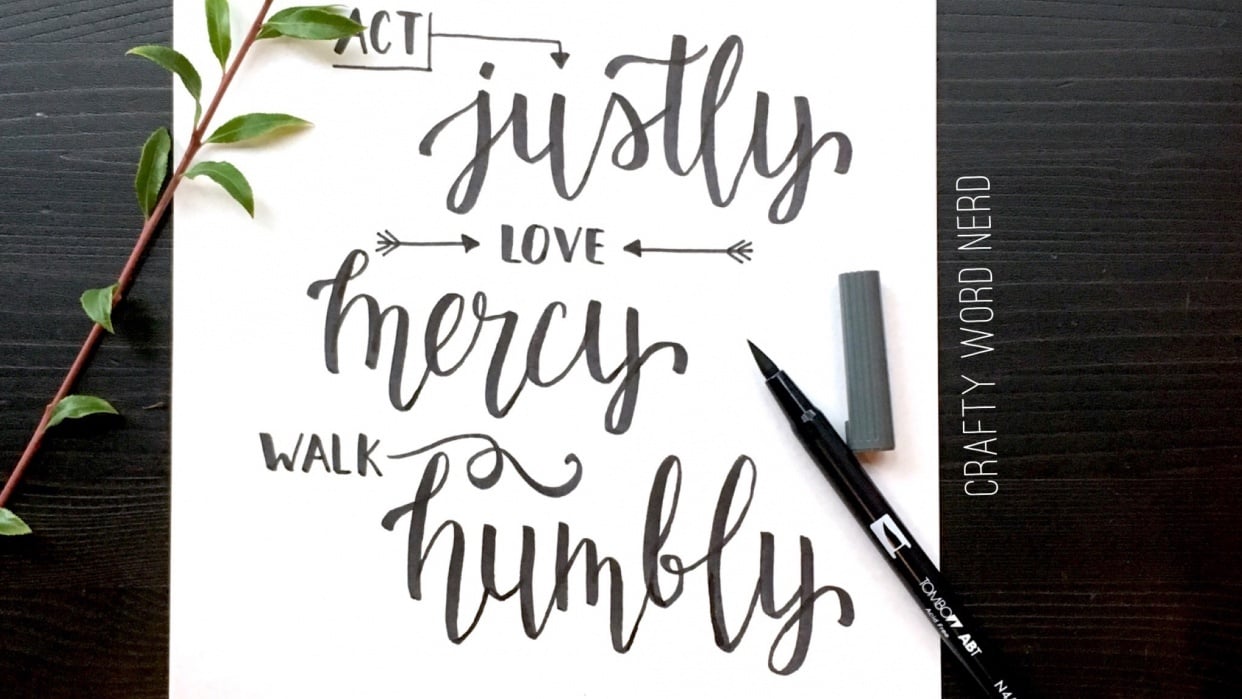 ACT
justly
LOVE
mercy
WALK
humbly
CRAFTY WORD NERD
TOMBOW ABT
Acid Free